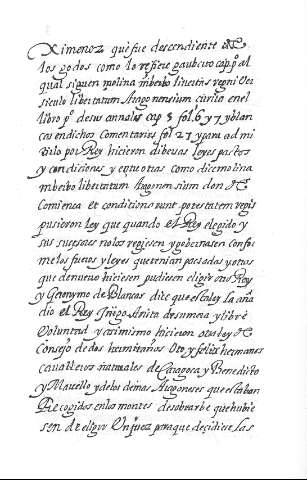 Ximenez que fue descendiente de
los godos como lo refiere gauberto cap. pº. al
qual siguen molina in verbo libertas regni Ver
siculo libertatum Aragonensium çurita en el
libro pº de sus annales cap 5 fol. 6 y 7 y blan
cas en dichos Comentarios fol 27 y para ad mi
tirlo por Rey hicieron diversas leyes pactos
y condiciones y entre otras como dice molina
in verbo libertatum Aragonensium don
Comienza et conditione runt potestatem regis
pusieron ley que quando el Rey elegido y
sus sucesores no los regiesen y gobernasen confor
me los fueros y leyes que tenian pasadas y otras
que de nuevo hiciesen pudiesen eligir otro Rey
y Geronymo de Blancas dice que esta ley la aña
dio el Rey Iñigo Arista de su mera y libre
Voluntad y asimismo hicieron otra ley
Consejo de dos hermitaños Oto y felix hermanos
cavalleros naturales de Caragoça y Benedito
y Marcello y de los demas Aragoneses que estaban
Recogidos en los montes de sobrarbe que hubie
sen de eligir Un Juez para que decidiese las